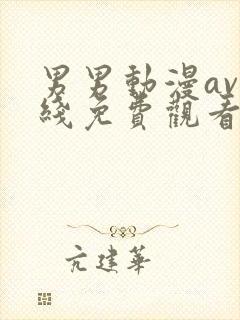 男男動漫av
綫免費觀看
亢建華